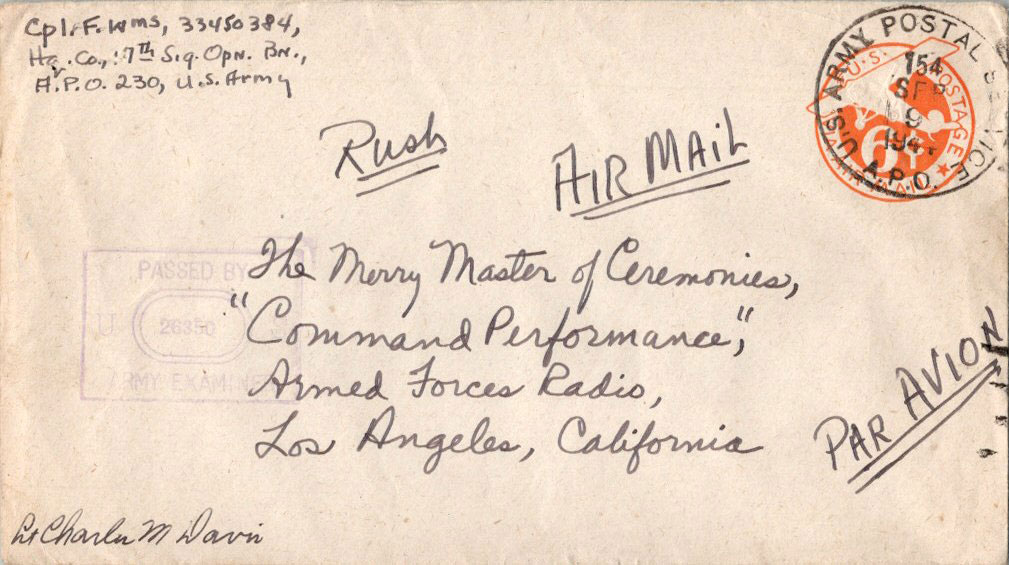 Cpl. F. Wms, 33450384,
Hq. Co., 7th Sig. Opn. Bn.,
A.P.O. 230, U.S. Army
U.S. ARMY POSTAL SERVICE
A.P.O.
154
SEP
9
U.S. POSTAGE
6¢
VIA AIR MAIL
Rush
AIR MAIL
The Merry Master of Ceremonies,
"Command Performance",
Armed Forces Radio,
Los Angeles, California
PAR AVION
PASSED BY
U
26350
ARMY EXAMINER
Lt Charles M Davis